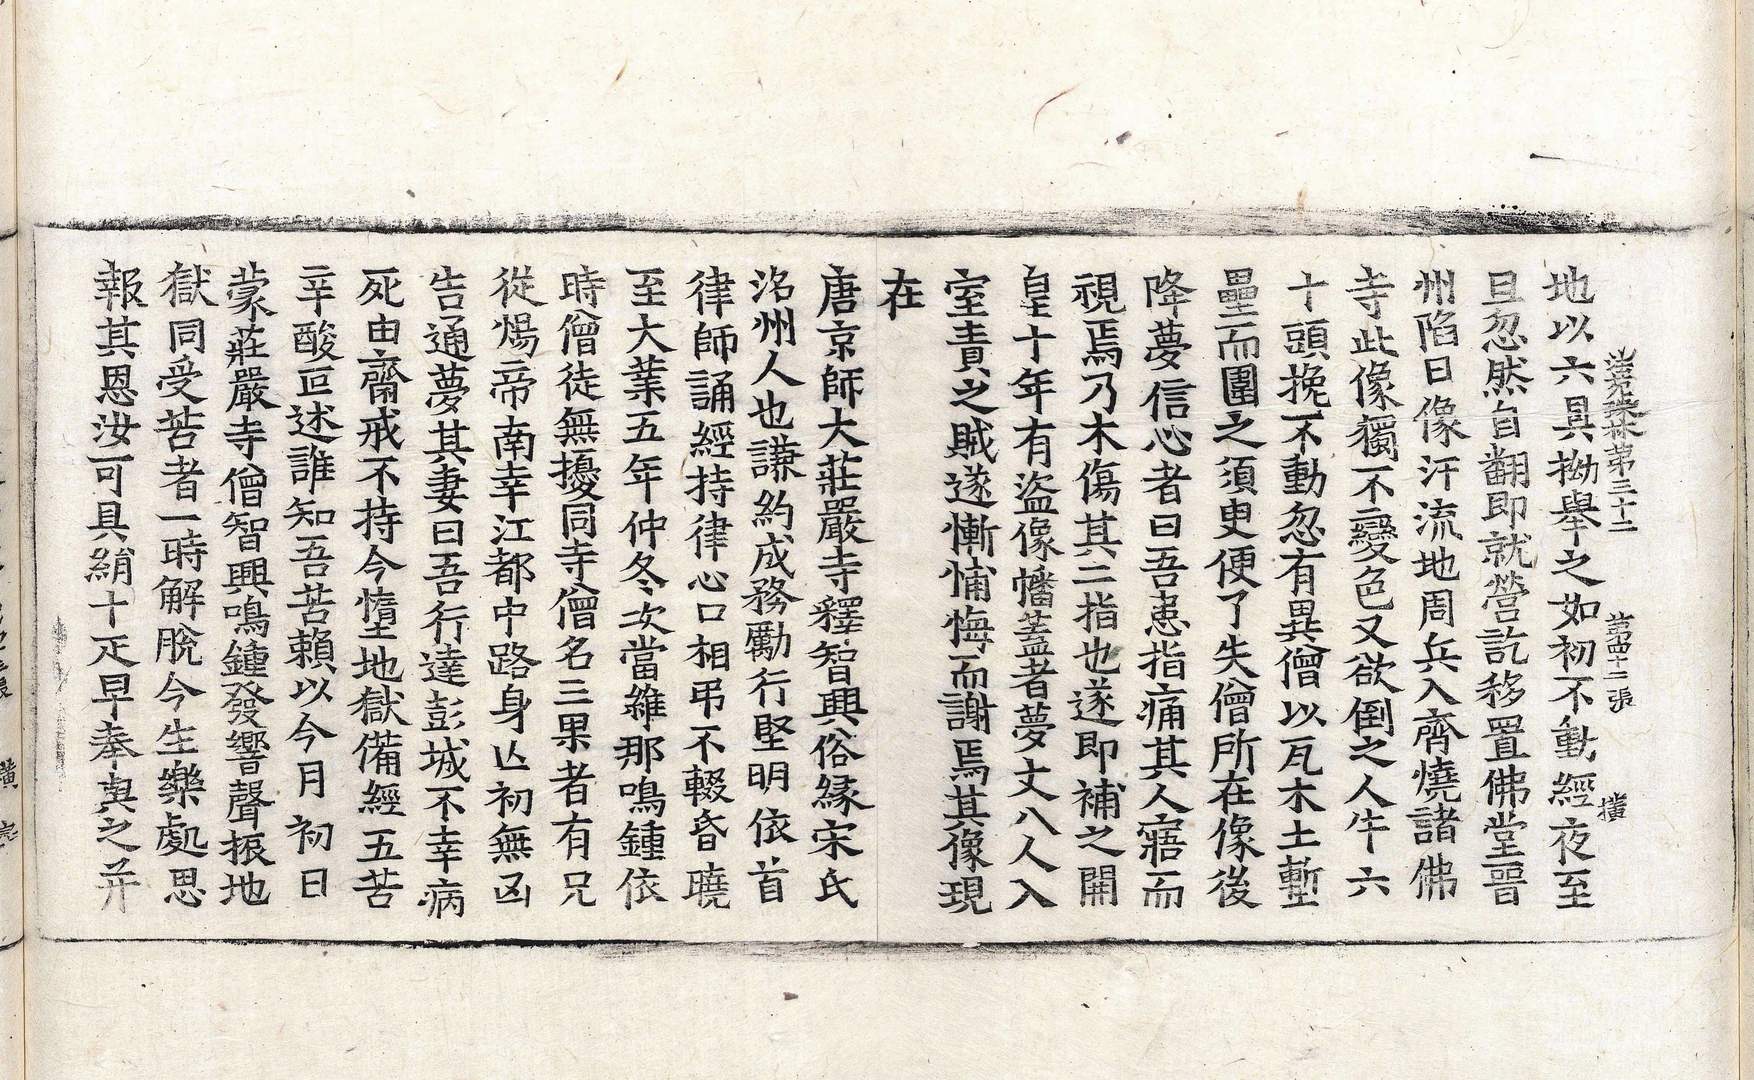 法苑珠林第三十二 第四十二張 橫
地以六具拗舉之如初不動經夜至
旦忽然自翻即就營訖移置佛堂晉
州陷日像汗流地周兵入齊燒諸佛
寺此像獨不變色又欲倒之人牛六
十頭挽不動忽有異僧以瓦木土塹
壘而圍之須更便了失僧所在像後
降夢信心者曰吾患指痛其人寤而
視焉乃木傷其二指也遂即補之開
皇十年有盜像幡蓋者夢丈八人入
室責之賊遂慚怖悔而謝焉其像現
在
唐京師大莊嚴寺釋智興俗緣宋氏
洺州人也謙約成務勵行堅明依首
律師誦經持律心口相弔不輟昏曉
至大業五年仲冬次當維那鳴鍾依
時僧徒無擾同寺僧名三果者有兄
從煬帝南幸江都中路身亾初無凶
告通夢其妻曰吾行達彭城不幸病
死由齋戒不持今墮地獄備經五苦
辛酸叵述誰知吾苦賴以今月初日
蒙莊嚴寺僧智興鳴鍾發響聲振地
獄同受苦者一時解脫今生樂處思
報其恩汝可具絹十疋早奉與之并